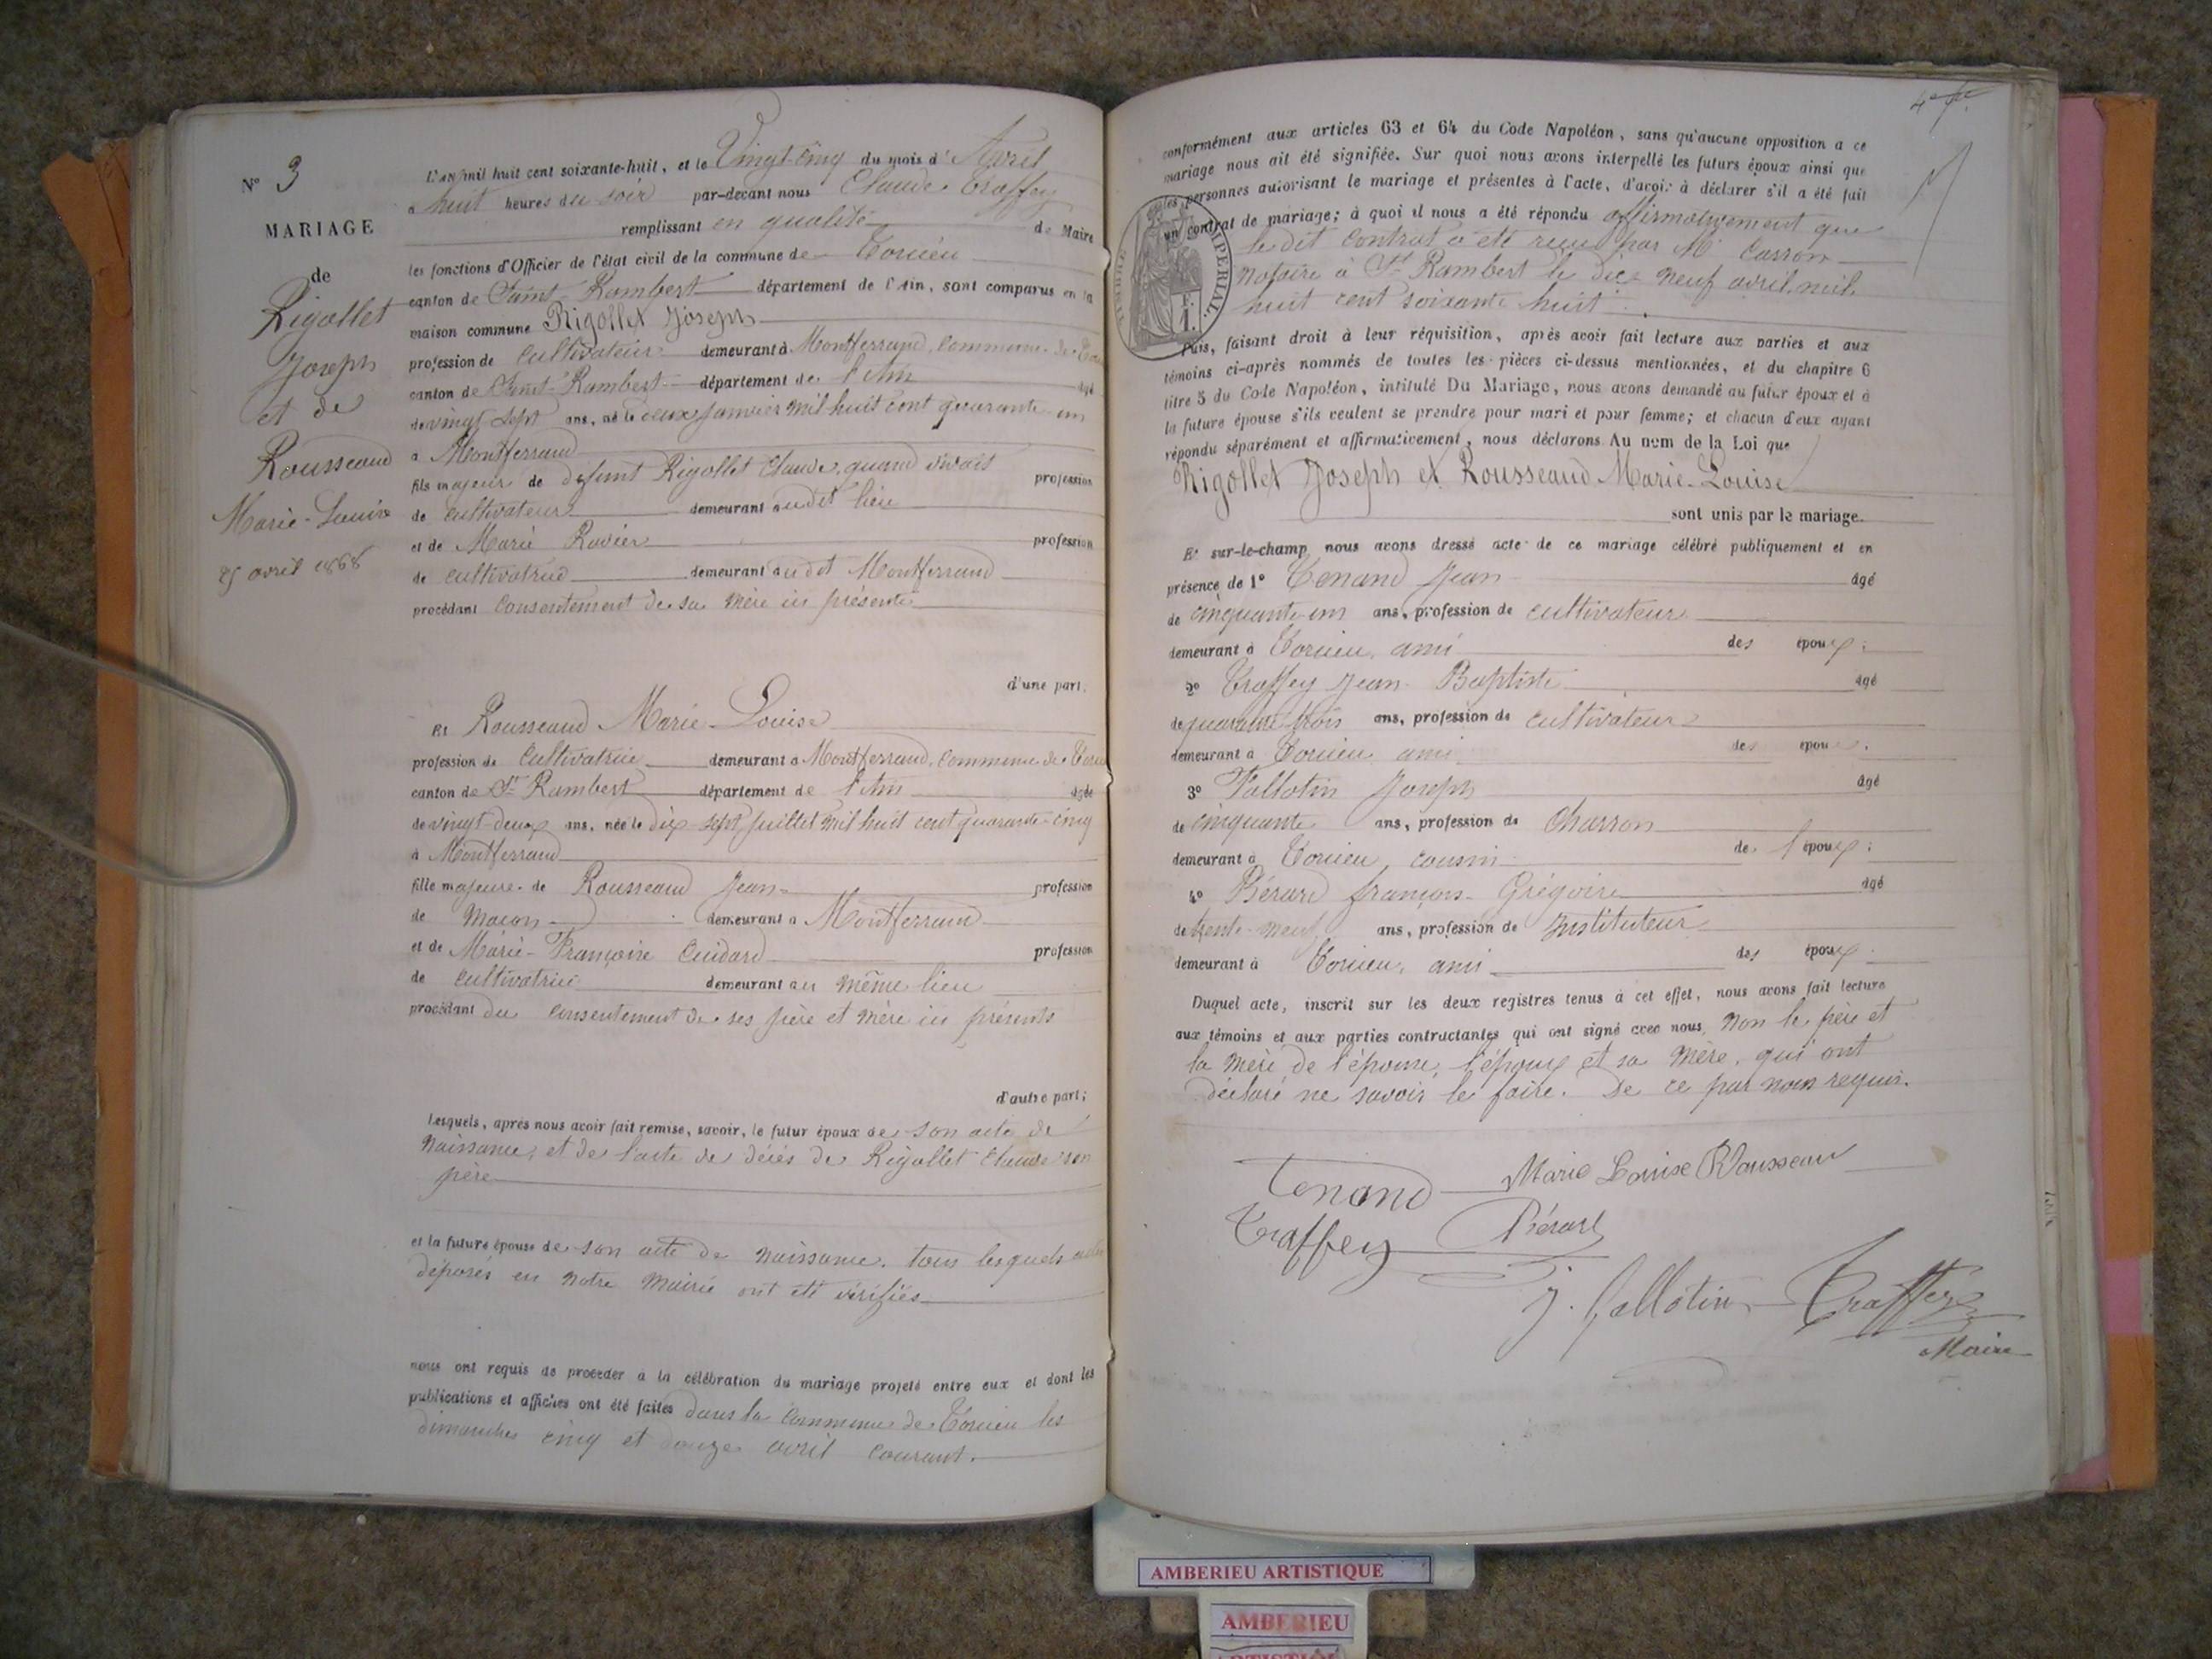 N° 3
MARIAGE
de
Rigollet
Joseph
et de
Rousseaud
Marie-Louise
25 avril 1868
L'an mil huit cent soixante-huit, et le Vingt-cinq du mois d'Avril
à huit heures du soir par-devant nous Claude Traffey
remplissant en qualité de Maire
les fonctions d'Officier de l'état civil de la commune de Torcieu
canton de Saint-Rambert département de l'Ain, sont comparus en la
maison commune Rigollet Joseph
profession de cultivateur demeurant à Montferrand, commune de
canton de Saint-Rambert département de l'Ain âgé
de vingt sept ans, né le deux janvier mil huit cent quarante-un
à Montferrand
fils majeur de défunt Rigollet Claude, quand vivait profession
de cultivateur demeurant audit lieu
et de Marie Ravier profession
de cultivatrice demeurant audit Montferrand
procédant consentement de sa mère ici présente
d'une part;
Et Rousseaud Marie-Louise
profession de cultivatrice demeurant à Montferrand, commune de
canton de St Rambert département de l'Ain âgée
de vingt-deux ans, née le dix-sept juillet mil huit cent quarante-cinq
à Montferrand
fille majeure de Rousseaud Jean profession
de maçon demeurant à Montferrand
et de Marie-Françoise Cuidard profession
de cultivatrice demeurant au même lieu
procédant du consentement de ses père et mère ici présents
d'autre part;
Lesquels, après nous avoir fait remise, savoir, le futur époux de son acte de
naissance, et de l'acte de décès de Rigollet Claude son
père
et la future épouse de son acte de naissance. tous lesquels actes
déposés en notre mairie ont été vérifiés
nous ont requis de procéder à la célébration du mariage projeté entre eux et dont les
publications et affiches ont été faites dans la commune de Torcieu les
dimanches cinq et douze avril courant.
conformément aux articles 63 et 64 du Code Napoléon, sans qu'aucune opposition a ce
mariage nous ait été signifiée. Sur quoi nous avons interpellé les futurs époux ainsi que
les personnes autorisant le mariage et présentes à l'acte, d'avoir à déclarer s'il a été fait
un contrat de mariage; à quoi il nous a été répondu affirmativement que
le dit contrat a été reçu par Me Carron
notaire à St Rambert le dix-neuf avril mil
huit cent soixante huit.
TIMBRE IMPÉRIAL.
1 F.
Puis, faisant droit à leur réquisition, après avoir fait lecture aux parties et aux
témoins ci-après nommés de toutes les pièces ci-dessus mentionnées, et du chapitre 6
titre 5 du Code Napoléon, intitulé Du Mariage, nous avons demandé au futur époux et à
la future épouse s'ils veulent se prendre pour mari et pour femme; et chacun d'eux ayant
répondu séparément et affirmativement, nous déclarons Au nom de la Loi que
Rigollet Joseph et Rousseaud Marie-Louise
sont unis par le mariage.
Et sur-le-champ nous avons dressé acte de ce mariage célébré publiquement et en
présence de 1° Tenand Jean âgé
de cinquante-un ans, profession de cultivateur
demeurant à Torcieu, ami des époux;
2° Traffey Jean-Baptiste âgé
de quarante-trois ans, profession de cultivateur
demeurant à Torcieu ami des époux.
3° Fallotin Joseph âgé
de cinquante ans, profession de Charron
demeurant à Torcieu, cousin de l'époux;
4° Bérard françois-Grégoire âgé
de trente-neuf ans, profession de Instituteur
demeurant à Torcieu, ami des époux.
Duquel acte, inscrit sur les deux registres tenus à cet effet, nous avons fait lecture
aux témoins et aux parties contractantes qui ont signé avec nous, non le père et
la mère de l'épouse, l'époux et sa mère, qui ont
déclaré ne savoir le faire. De ce par nous requis.
Tenand Marie Louise Rousseau
Traffey Bérard
J. fallotin Traffey
Maire
AMBERIEU ARTISTIQUE
AMBERIEU
ARTISTIQUE